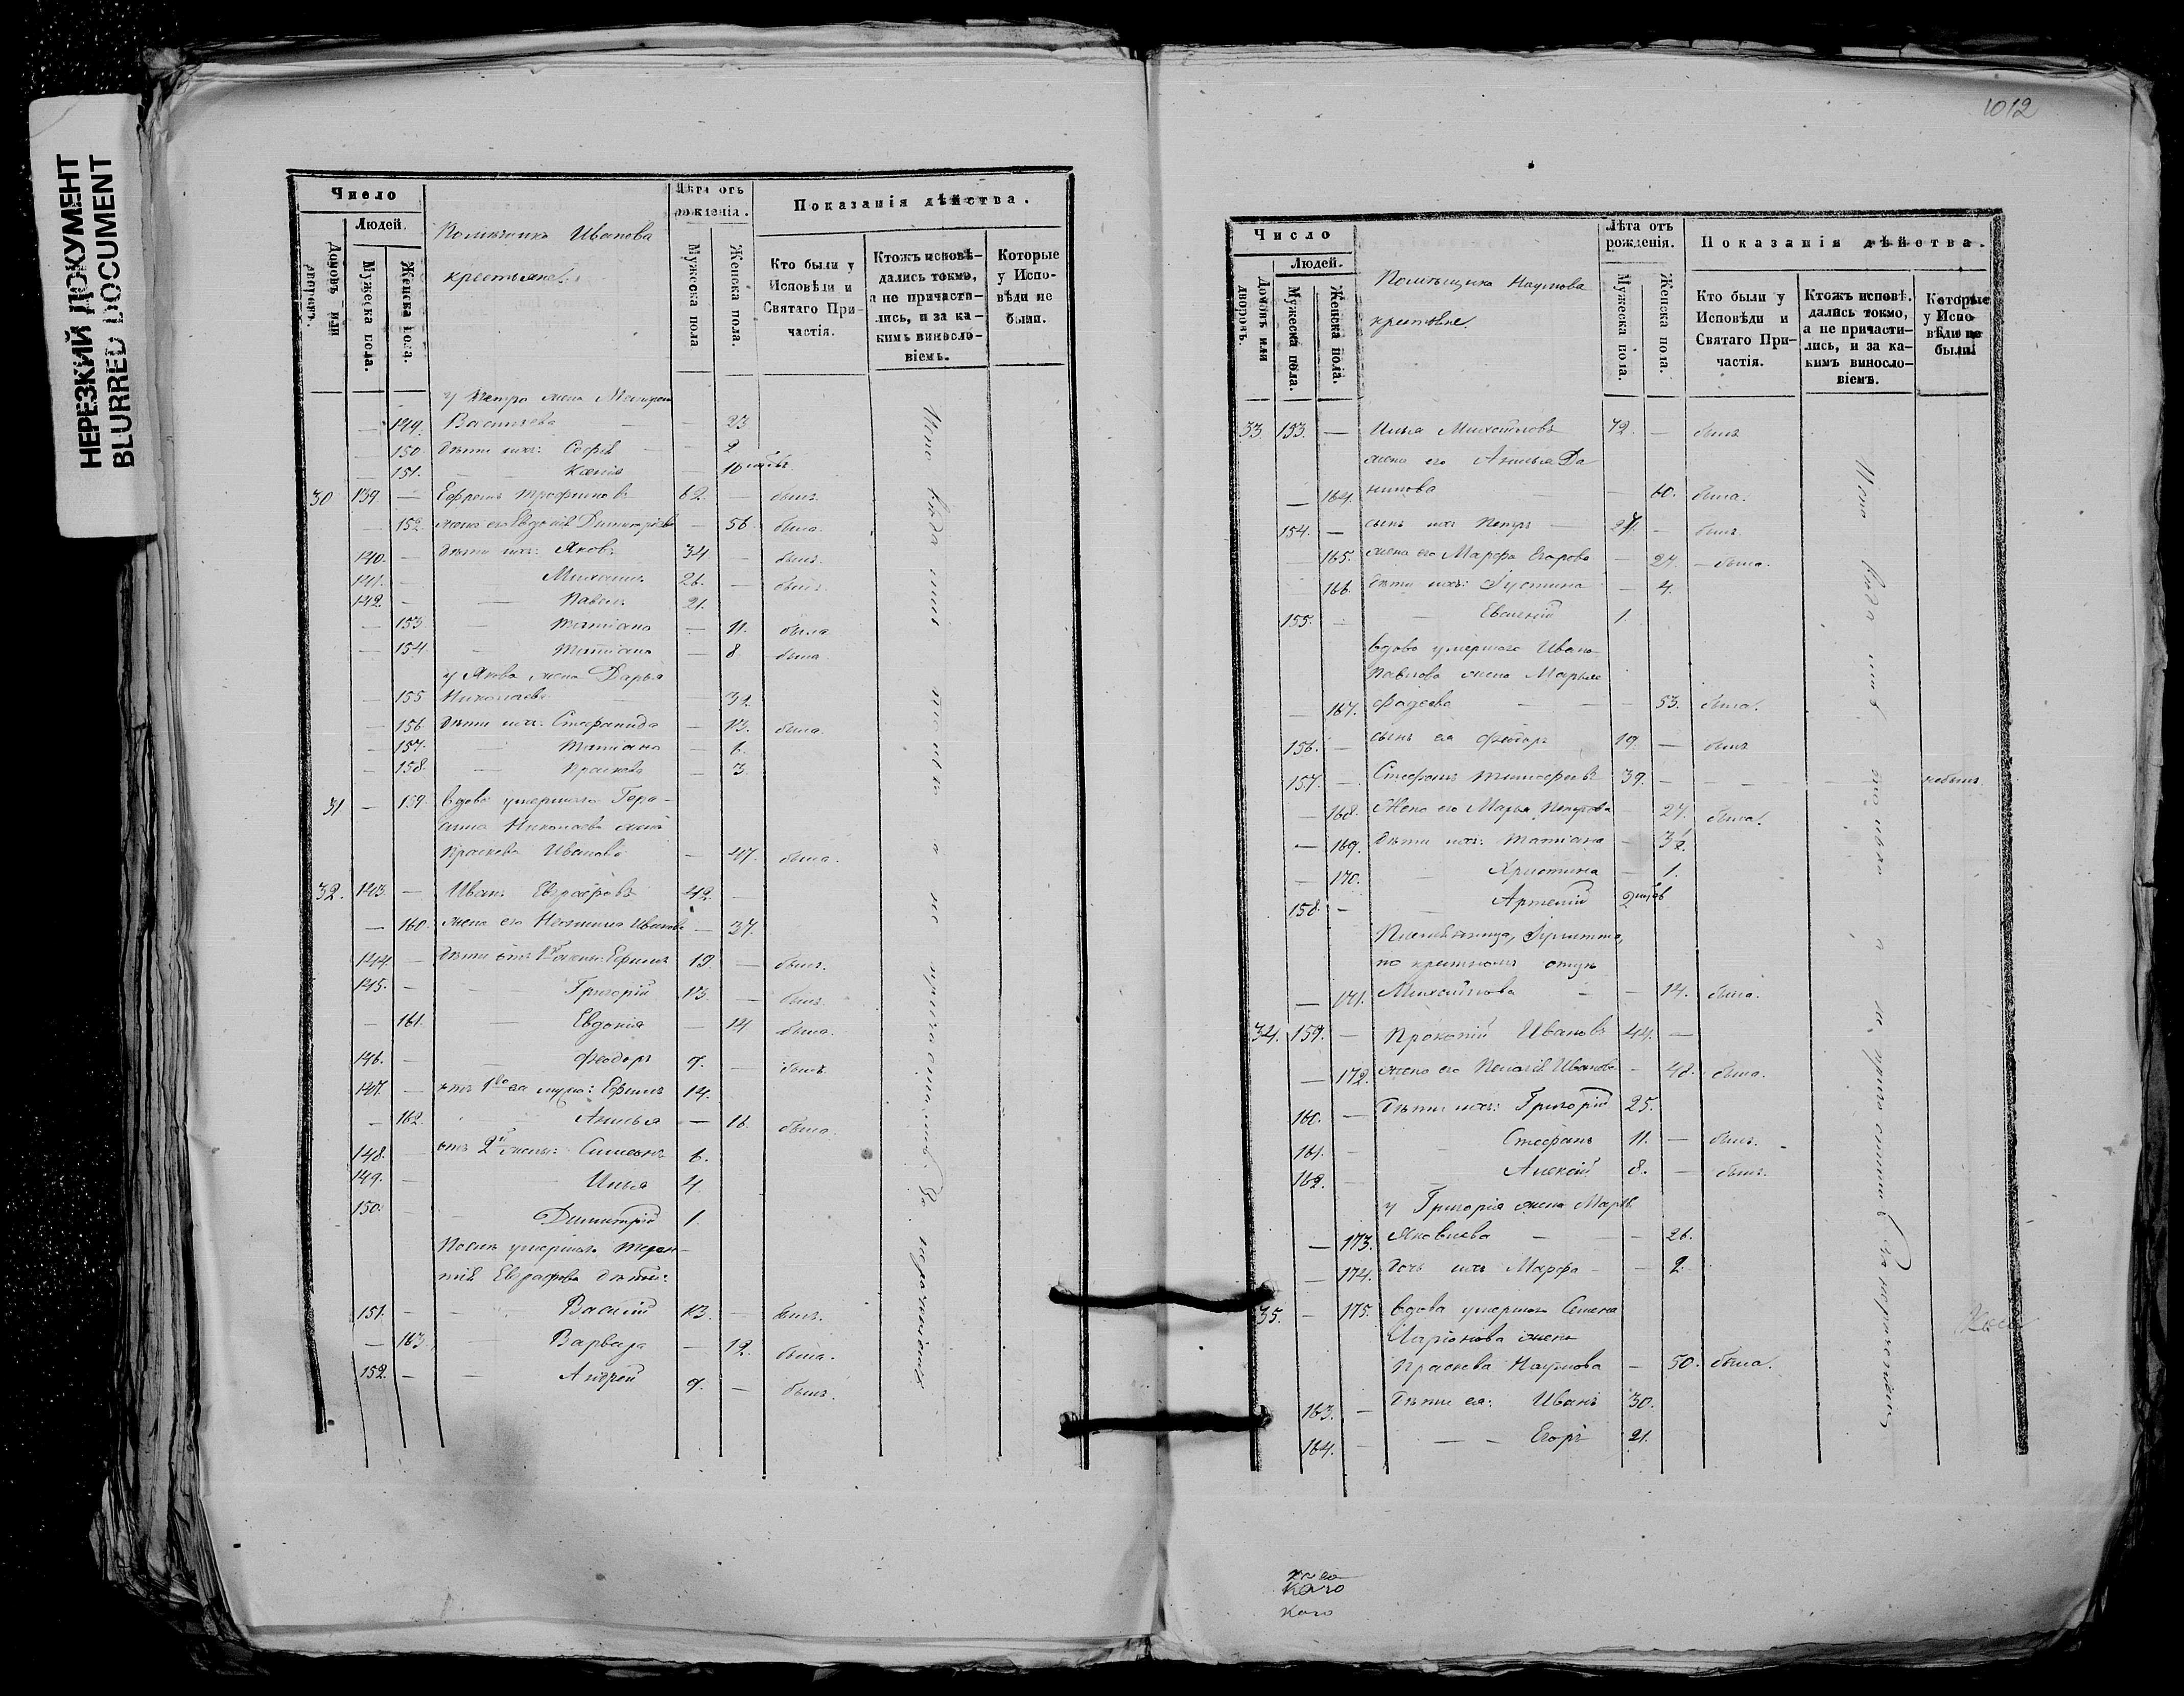 НЕРЕЗКИЙ ДОКУМЕНТ
BLURRED DOCUMENT
Число
Людей.
Домовъ или дворовъ.
Мужеска пола.
Женска пола.
Помѣщика Иванова
крестьяне:
Лѣта отъ рожденія.
Мужеска пола
Женска пола.
Показанія дѣйства.
Кто были у Исповѣди и Святаго Причастія.
Ктожъ исповѣдались токмо, а не причастились, и за какимъ винословіемъ.
Которые у Исповѣди не были.
у Петра жена
— 149. Васильева — — 23
— 150. дѣти ихъ: Софія — — 2
— 151. — Ксенія — 10
30 139 — Ефремъ Трофимовъ 62. — былъ.
— 152. жена его Евдокія Димитріева — 56. была.
140. — дѣти ихъ: Яковъ 34 — былъ.
141. — Михаилъ 26. — былъ.
142. — — Павелъ 21.
— 153 — Татіана — 11. была
— 154 — Татіана — 8 была.
у Якова жена Дарья
— 155 Николаева — 32
— 156 дѣти ихъ: Стефанида — 13. была.
— 157. — Татіана — 6.
— 158. — Прасковья — 3
31 — 159. вдова умершаго Гера-
сима Николаева жена
Прасковья Иванова — 47. была.
32. 143. — Иванъ Евграфовъ 42. —
— 160. жена его Иванова — 37.
144 — дѣти отъ 1й жены: Ефимъ 19. — былъ.
145. — — Григорій 13. — былъ.
— 161. — Евдокія — 14 была.
146. — — Феодоръ 9. — былъ.
147. — отъ 1го ея мужа: Ефимъ 14.
— 162. Анисья — 16 была.
148. отъ 2й жены: Симеонъ 6.
149. — Илья 4.
150. — Димитрій 1.
Послѣ умершаго Терен-
тія Евграфова дѣти:
151. — — Василій 13. — былъ.
— 163. — Варвара — 12. была.
152. — — Андрей 9. — былъ.
1012
Число
Людей.
Домовъ или дворовъ.
Мужеска пола.
Женска пола.
Помѣщика Наумова
крестьяне.
Лѣта отъ рожденія.
Мужеска пола.
Женска пола.
Показанія дѣйства.
Кто были у Исповѣди и Святаго Причастія.
Ктожъ исповѣдались токмо, а не причастились, и за какимъ винословіемъ.
Которые у Исповѣди не были.
33. 153. — Илья Михайловъ 72. — былъ
жена его Анисья Да
— 164. нилова — — 60. была.
154. — сынъ ихъ Петръ — 27. — былъ.
— 165. жена его Марфа Егорова — 27. — была.
166. дѣти ихъ: Іустина — 4.
155. — — Евгеній 1.
вдова умершаго Ивана
Павлова жена Марья
— 167. Фадеева — — 53. была.
156. — сынъ ея Феодоръ 19. — былъ
157. — Стефанъ Тимофеевъ 39. — — — небылъ.
— 168. Жена его Марья Петрова — 27. была.
— 169. дѣти ихъ: Татіана — 3½.
— 170. — Христина — 1.
158. — — Артемій 2
Племянница,
по крестномъ отцѣ
— 171. Михайлова — — 14. была.
34. 159. — Прокопій Ивановъ 44. —
— 172. жена его Пелагія Иванова — 48. была.
160. — дѣти ихъ: Григорій 25.
161. — — Стефанъ 11. — былъ.
162. — — Алексій 8. — былъ.
у Григорія жена Марья
— 173. Яковлева — — 26.
— 174. дочь ихъ Марфа — — 2.
35. — 175. вдова умершаго Семена
Ларіонова жена
Прасковья Наумова — 50. была.
163. — дѣти ея: Иванъ 30.
164. — — Егоръ 21.
кого
кого